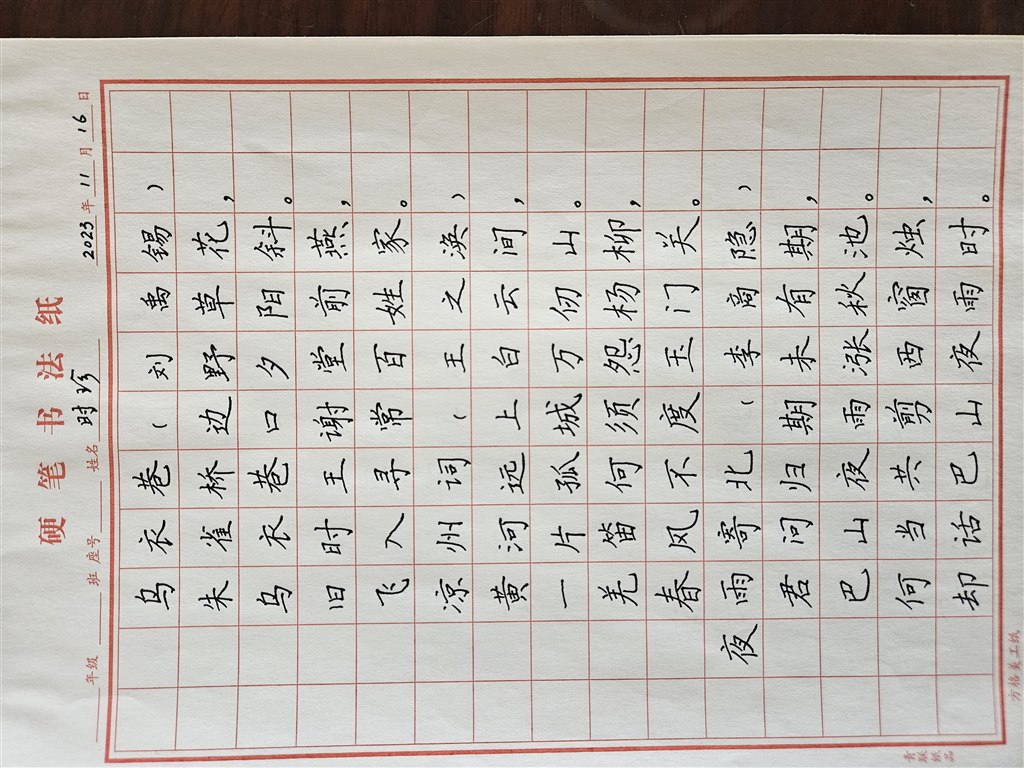 硬笔书法纸
年级 班 座号 姓名 时珍 2023年11月16日
乌衣巷（刘禹锡）
朱雀桥边野草花，
乌衣巷口夕阳斜。
旧时王谢堂前燕，
飞入寻常百姓家。
凉州词（王之涣）
黄河远上白云间，
一片孤城万仞山。
羌笛何须怨杨柳，
春风不度玉门关。
夜雨寄北（李商隐）
君问归期未有期，
巴山夜雨涨秋池。
何当共剪西窗烛，
却话巴山夜雨时。
青联纸品
方格美工纸